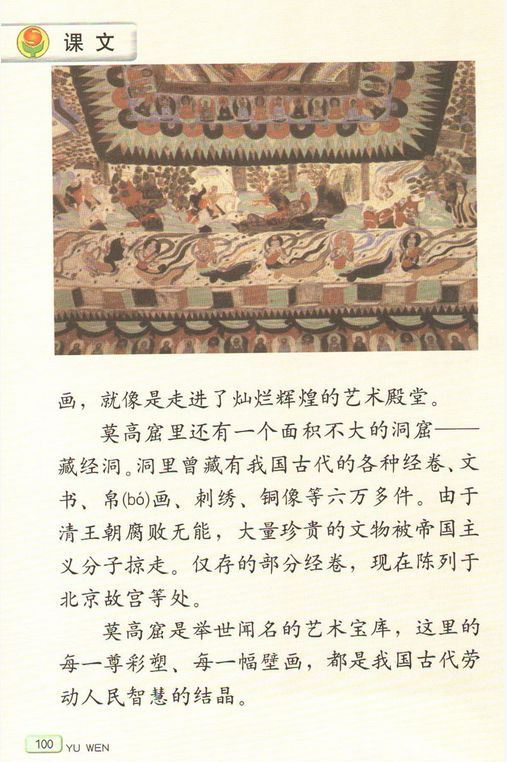 课文
画，就像是走进了灿烂辉煌的艺术殿堂。
莫高窟里还有一个面积不大的洞窟——
藏经洞。洞里曾藏有我国古代的各种经卷、文
书、帛(bó)画、刺绣、铜像等六万多件。由于
清王朝腐败无能，大量珍贵的文物被帝国主
义分子掠走。仅存的部分经卷，现在陈列于
北京故宫等处。
莫高窟是举世闻名的艺术宝库，这里的
每一尊彩塑、每一幅壁画，都是我国古代劳
动人民智慧的结晶。
100 YU WEN